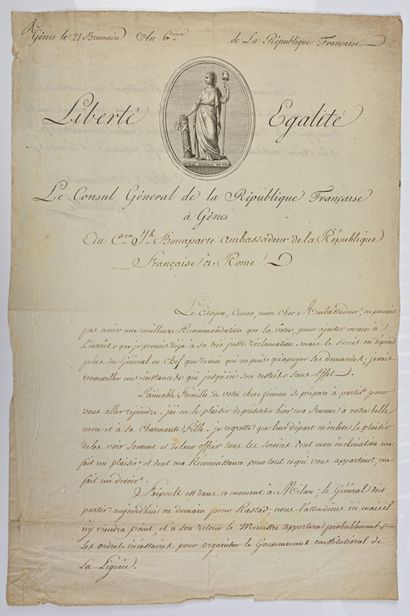 Gênes le 21 Brumaire An 6ème de La République Française
Liberté Egalité
Le Consul Général de la République Française
à Gênes
Au Cen Jph Bonaparte Ambassadeur de la République
Française à Rome
Le Citoyen, mon cher Ambassadeur, ne pouvait
pas avoir une meilleure Recommandation que la votre pour ajouter encore à
L'intérêt que je prenois déjà à sa très juste réclamation, mais le succès en dépend
plus du Général en Chef que de moi qui ne puis qu'appuyer ses demandes; je vais
renouveller mes instances qui jusqu'ici sont restées sans effet.
L'aimable famille de votre chere femme se prépare à partir pour
vous aller rejoindre. j'ai eu le plaisir de présenter hier ma femme à votre belle
mere et à sa Charmante fille. je regrette que leur départ m'ote le plaisir
de les voir souvent et de leur offrir tous les services dont mon inclination me
fait un plaisir et dont ma Reconnaissance pour tout ce qui vous appartient, me
fait un devoir.
Faipoult est dans ce moment à Milan; le Général doit
partir aujourdhui ou demain pour Rastad; nous l'attendions ici mais il
n'y viendra point et à son retour le Ministre apportera probablement
les ordres nécessaires pour organiser le Gouvernement constitutionnel de
La Ligurie.